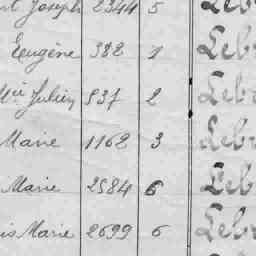 Joseph 2344 5 Leb
Eugène 382 1 Leb
Julien 537 2 Leb
Marie 1162 3 Leb
Marie 2584 6 Leb
Marie 2699 6 Leb